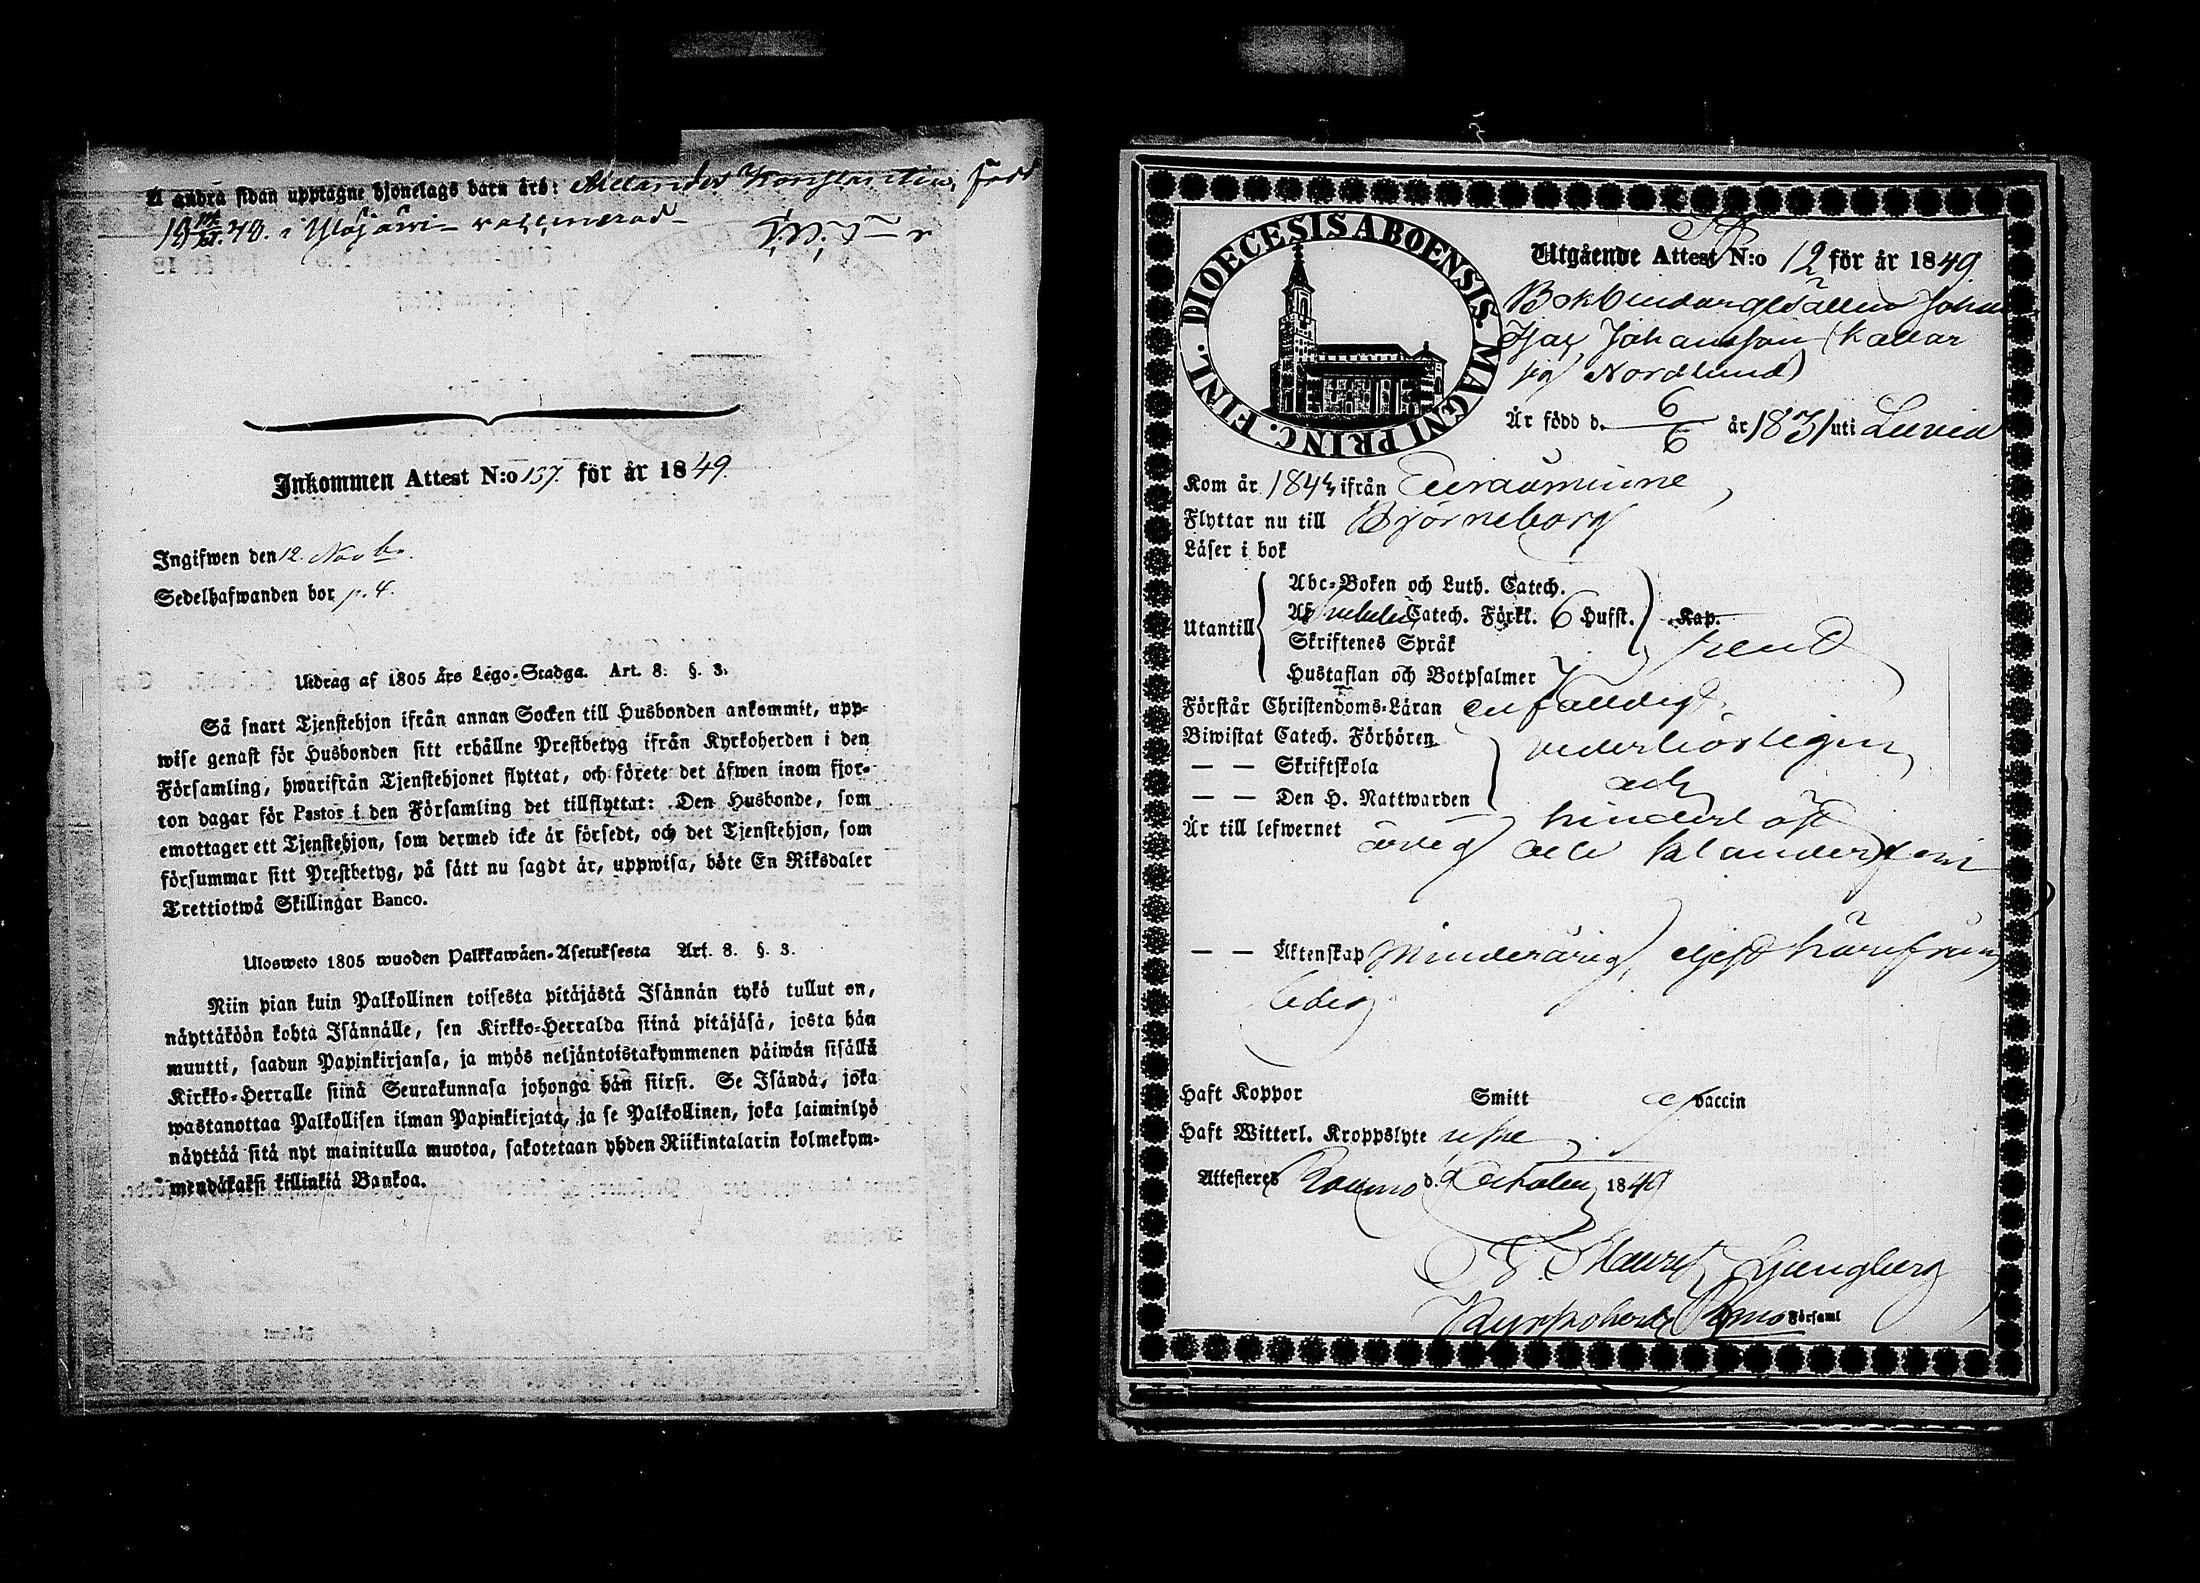 å andra sidan upptagne hjonelags barn äro: Alexander Konstantin, född
i Ylöjärwi vaccinerad
Inkommen Attest N:o 137. för år 1849.
Ingifwen den 12. Novbr.
Sedelhafwanden bor p. 4.
Utdrag af 1805 års Lego-Stadga. Art. 8. §. 3.
Så snart Tjenstehjon ifrån annan Socken till Husbonden ankommit, upp-
wise genast för Husbonden sitt erhållne Prestbetyg ifrån Kyrkoherden i den
Församling, hwarifrån Tjenstehjonet flyttat, och förete det äfwen inom fjor-
ton dagar för Pastor i den Församling det tillflyttat: Den Husbonde, som
emottager ett Tjenstehjon, som dermed icke är försedt, och det Tjenstehjon, som
försummar sitt Prestbetyg, på sätt nu sagdt är, uppwisa, böte En Riksdaler
Trettiotwå Skillingar Banco.
Ulosweto 1805 wuoden Palkkawäen-Asetuksesta Art. 8. §. 3.
Niin pian kuin Palkollinen toisesta pitäjästä Isännän tykö tullut on,
näyttäköön kohta Isännälle, sen Kirkko-Herralda siinä pitäjäsä, josta hän
muutti, saadun Papinkirjansa, ja myös neljäntoistakymmenen päiwän sisällä
Kirkko-Herralle siinä Seurakunnasa johonga hän siirsi. Se Isändä, joka
wastanottaa Palkollisen ilman Papinkirjata, ja se Palkollinen, joka laiminlyö
näyttää sitä nyt mainitulla muotoa, sakotetaan yhden Riikintalarin kolmekym-
mendäkaksi killinkiä Bankoa.
DIOECESIS ABOENSIS. MAGNI PRINC. FINL.
Utgående Attest N:o 12 för år 1849
Bokbindaregesällen Johan
Isac Johansson (kallar
sig Nordlund)
Är född d. 6/6 år 1831 uti Luvia
Kom år 184 ifrån Euraåminne
Flyttar nu till Björneborg
Läser i bok
Abc-Boken och Luth. Catech.
Catech. Förkl. 6 Hufst. Kap.
Utantill
Skriftenes Språk
Hustaflan och Botpsalmer
Förstår Christendoms-Läran enfaldigt
Biwistat Catech. Förhören vederbörligen
— — Skriftskola och
— — Den H. Nattwarden
Är till lefwernet
ärlig
— — Äktenskap Minderårig, eljest härifrån
ledig
Haft Koppor Smitt vaccin
Haft Witterl. Kroppslyte
Attesteras Raumo d. October 1849
Ljungberg
Kyrkoherde Församl